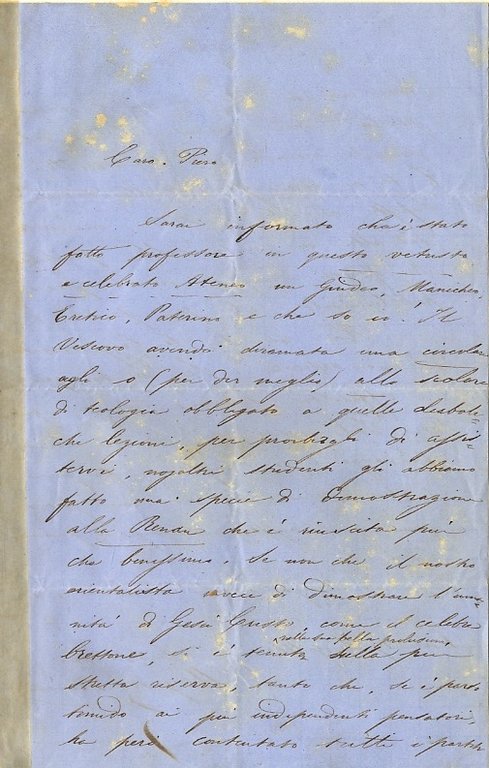 Caro Piero
Sarai informato che è stato
fatto professore in questo vetusto
e celebrato Ateneo un Giudeo, Manicheo,
Eretico, Paterino e che so io! Il
Vescovo avendo diramata una circolare
agli o (per dir meglio) allo scolare
di teologia obbligato a quelle diaboli=
che lezioni, per proibirgli di assi=
tervi, nojaltri studenti gli abbiamo
fatto una specie di dimostrazione
alla Renan che è riuscita più
che benissimo. Se non che il nostro
orientalista invece di dimostrare l'uma=
nità di Gesù Cristo, come il celebre
nella sua bella prolusione,
Brettone, si è tenuto sulla più
stretta riserva, tanto che, se è parso
timido ai più indipendenti pensatori,
ha però contentato tutti i partiti